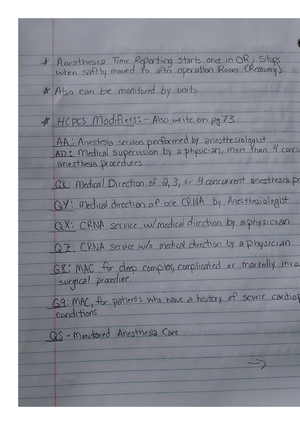 * Anesthesia Time Reporting starts once in OR; Stops
when saftly moved to after operation Room (Recovery)
* Also can be monitored by units.
* HCPCS Modifiers:- Also write on pg 73
AA: Anestesia services performed by anesthesiologist
AD: Medical supervision by a physician, more than 4 conc
anesthesia procedures.
QK: Medical Direction of 2, 3, or 4 concurrent anesthesia pr
QY: Medical direction of one CRNA by Anesthesiologist
QX: CRNA service w/ medical direction by a physician
QZ: CRNA service w/o medical direction by a physician
G8: MAC for deep complex, complicated or markedly inva
surgical procedure.
G9: MAC, for patients who have a history of severe cardiop
conditions
QS - Monitored Anesthesia Care